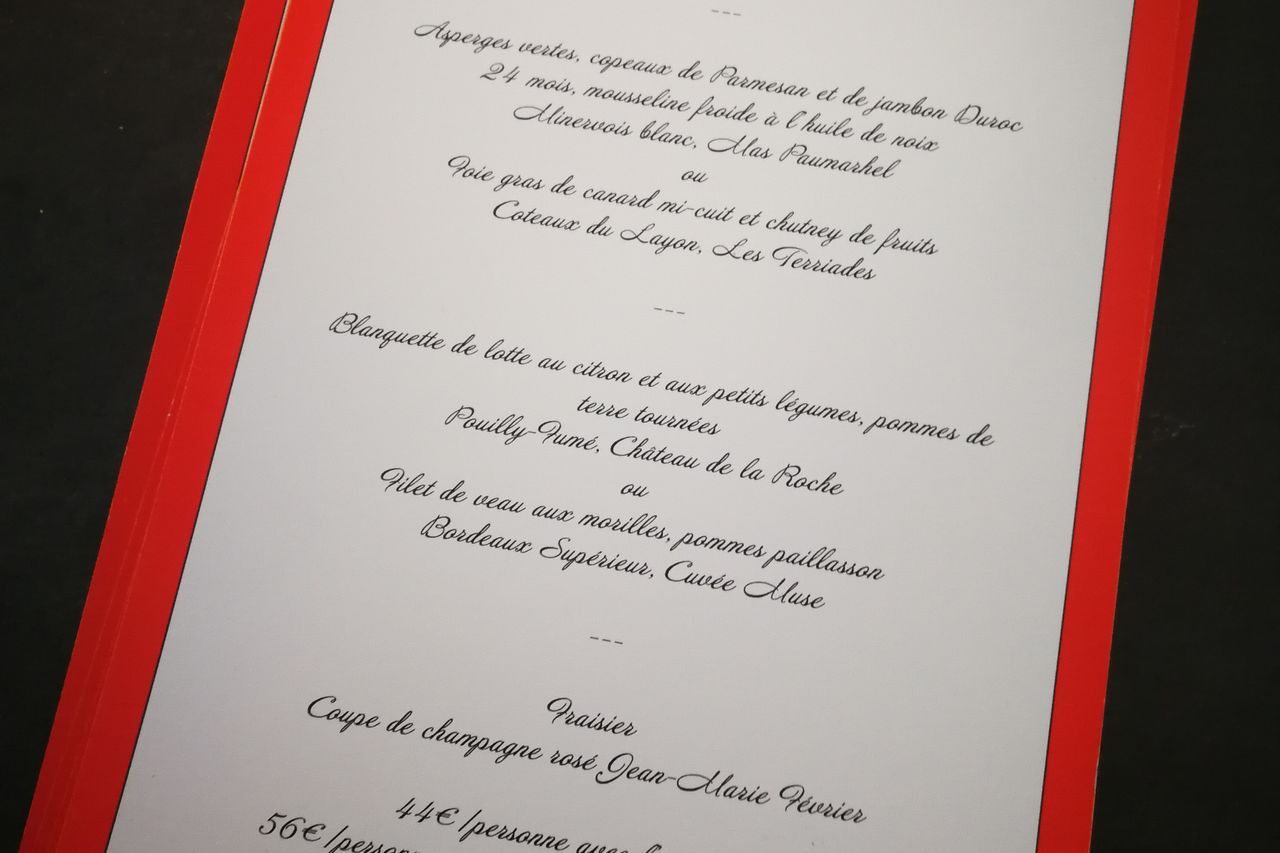 ---
Asperges vertes, copeaux de Parmesan et de jambon Duroc
24 mois, mousseline froide à l'huile de noix
Minervois blanc, Mas Paumarhel
ou
Foie gras de canard mi-cuit et chutney de fruits
Coteaux du Layon, Les Terriades
---
Blanquette de lotte au citron et aux petits légumes, pommes de
terre tournées
Pouilly-Fumé, Château de la Roche
ou
Filet de veau aux morilles, pommes paillasson
Bordeaux Supérieur, Cuvée Muse
---
Fraisier
Coupe de champagne rosé Jean-Marie Février
44€/personne avec
56€/